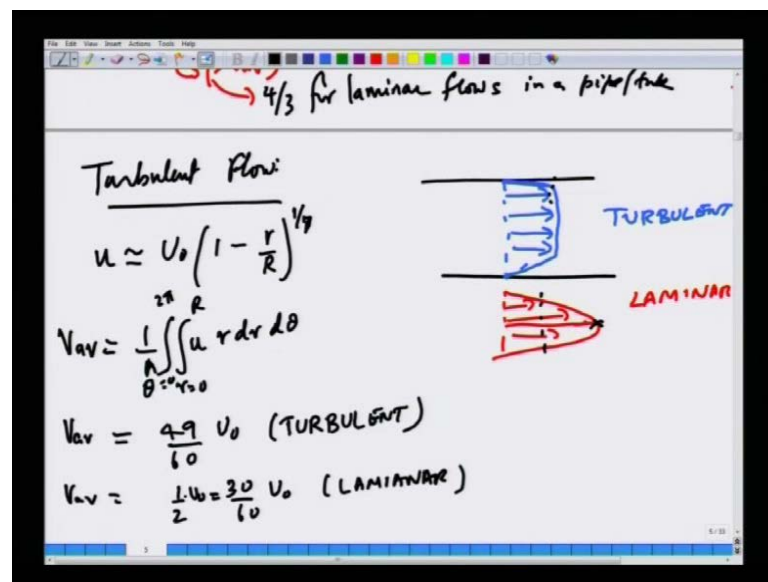 File Edit View Insert Actions Tools Help
4/3 for laminar flows in a pipe/tube
Turbulent Flow:
u ≃ U₀ (1 - r/R)^1/7
Vav = 1/A ∫∫ u r dr dθ
2π R
θ=0 r=0
Vav = 49/60 U₀ (TURBULENT)
Vav = 1/2 U₀ = 30/60 U₀ (LAMIANAR)
TURBULENT
LAMINAR
5